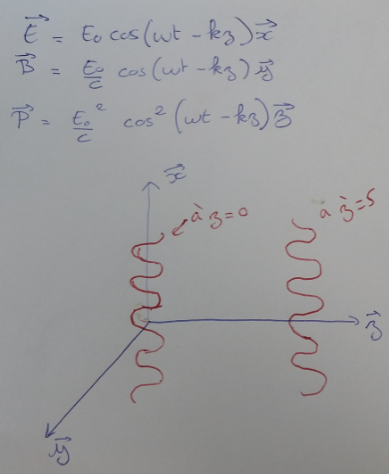 E⃗ = E₀ cos(ωt - kz) x⃗
B⃗ = E₀/c cos(ωt - kz) y⃗
P⃗ = E₀²/c cos²(ωt - kz) z⃗
x⃗
à z=0
à z=5
z⃗
y⃗